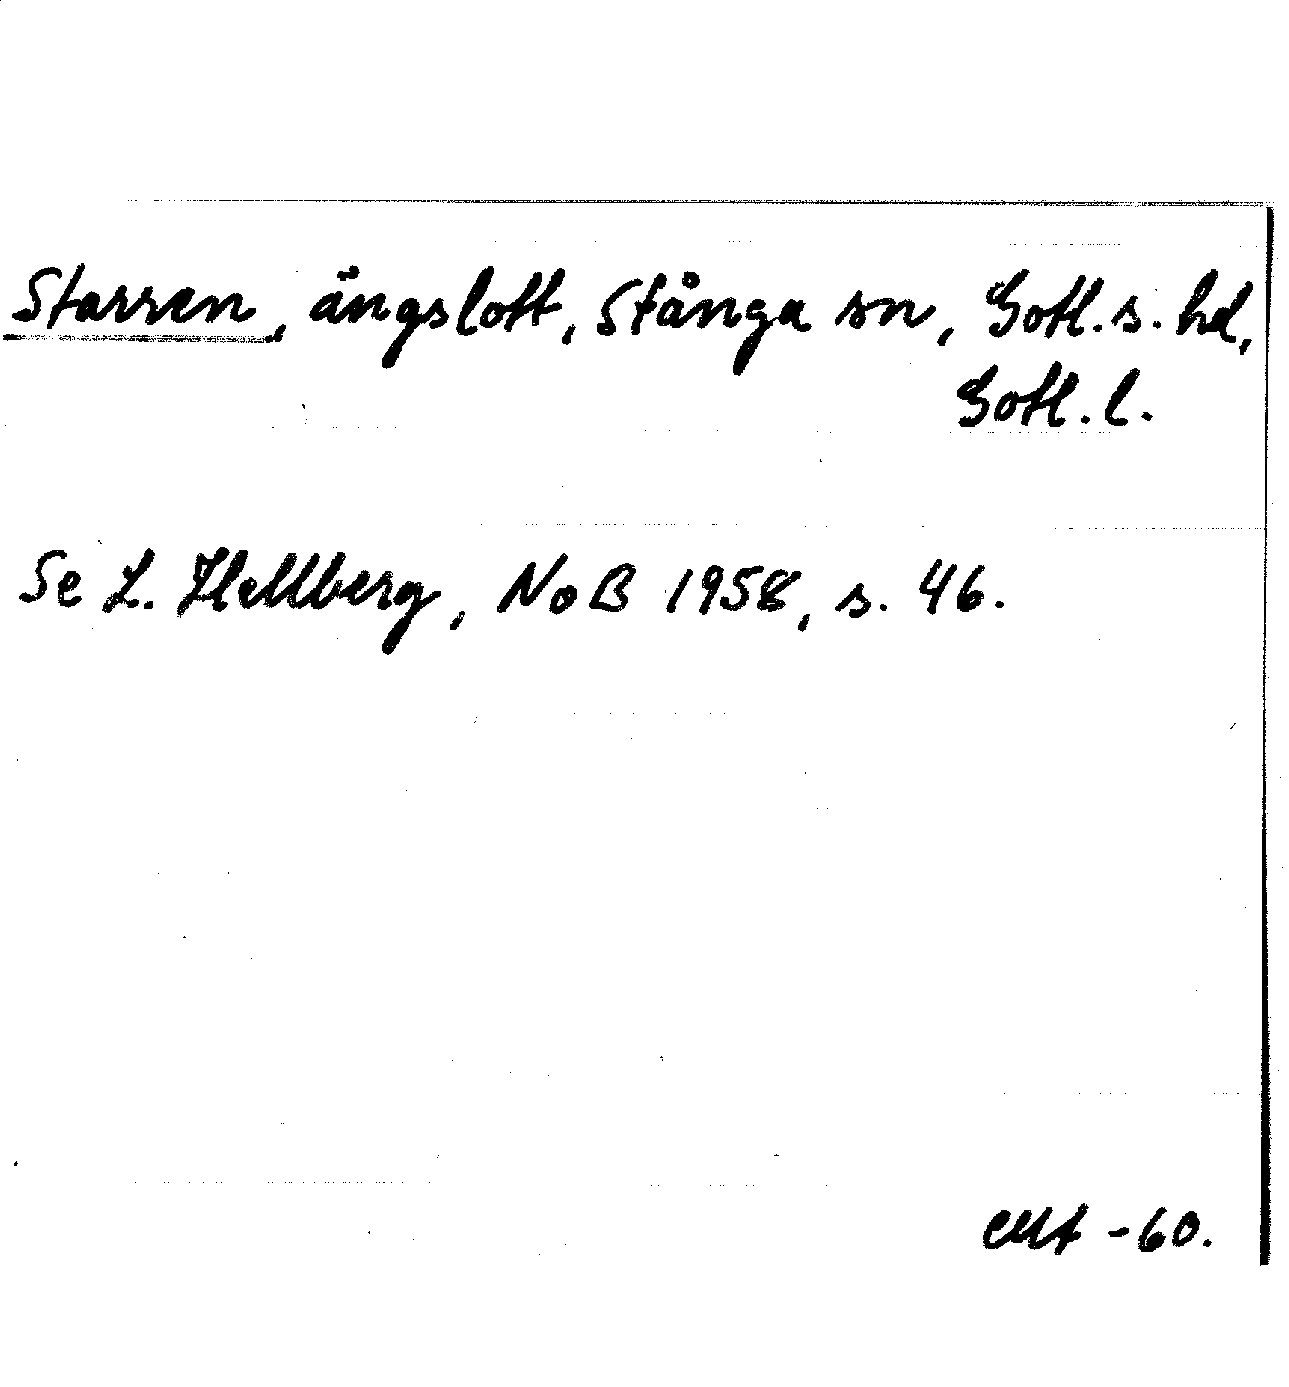 Starren, ängslott, Stånga sn, Gotl. s. hd,
Gotl. l.
Se L. Hellberg, NoB 1958, s. 46.
-60.